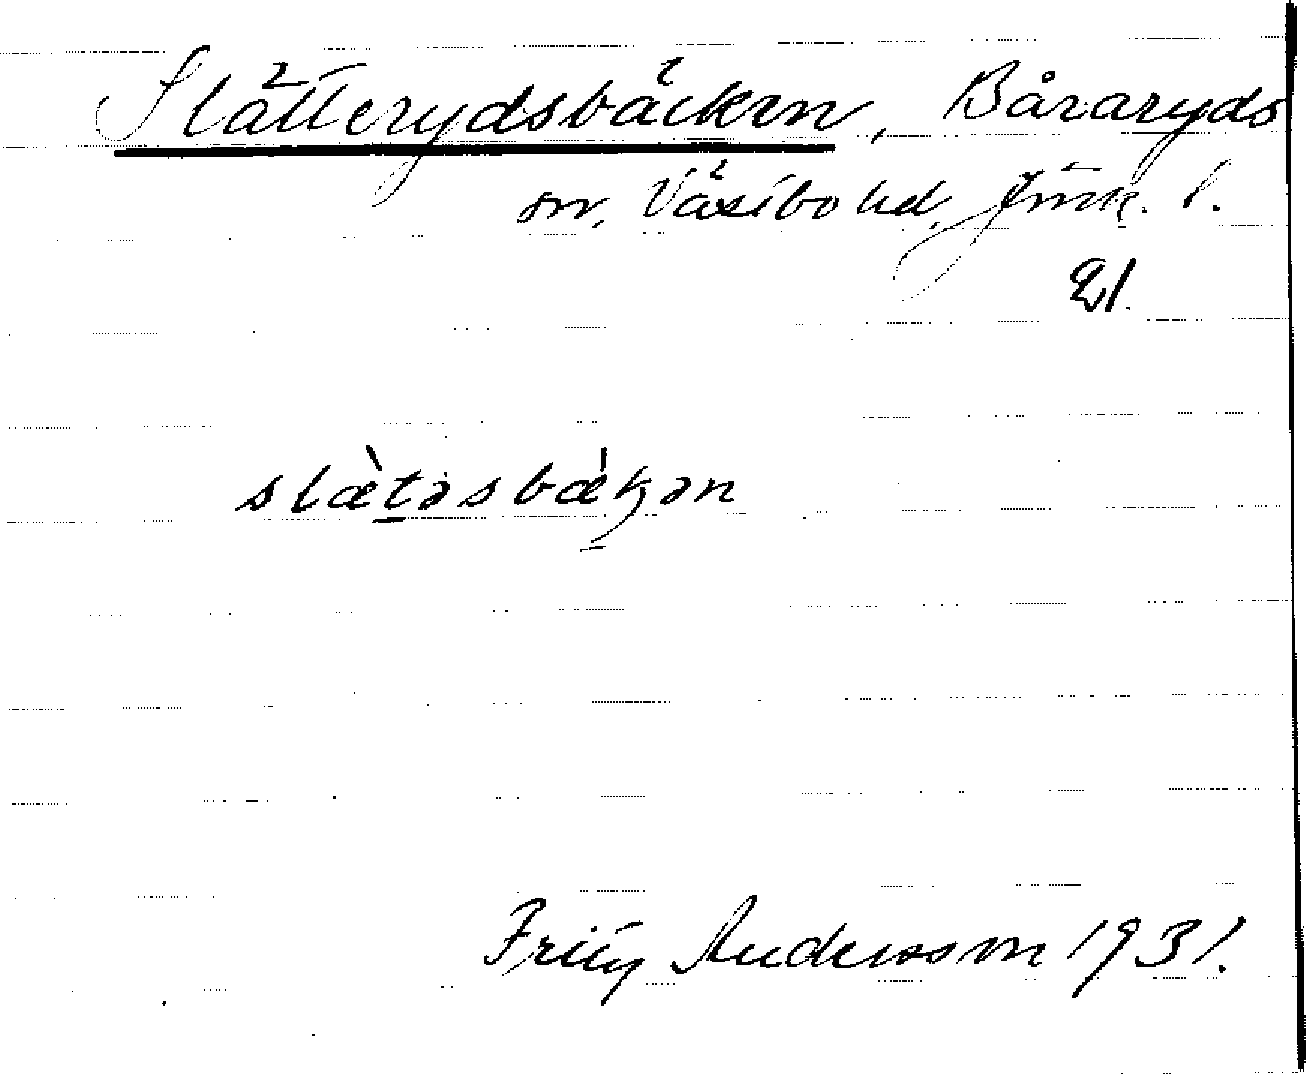 Slätterydsbäcken, Båraryds
sn, Västbo hd, Jönk. l.
21.
slæ̀təsbæ̀kən
Fritz Andersson 1931.